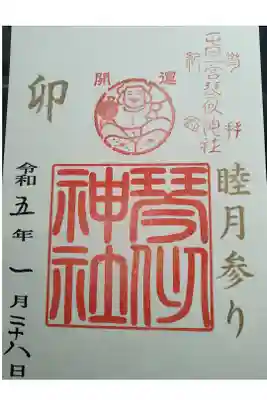 琴似神社
開運
睦月参り
琴似
神社
卯
令和五年一月二十八日